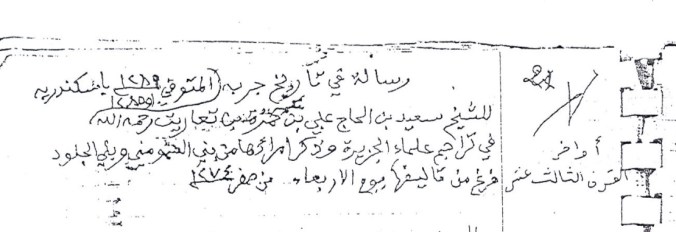 21
رسالة في تاريخ جربه (المتوفي ١٢٨٩ باسكندريه
للشيخ سعيد بن الحاج علي بن تعاريت رحمه الله
في تراجم علماء الجزيرة وذكر امرائها من بني السمومني وبني الجلود
فرغ من تاليفها يوم الاربعاء من صفر ١٢٧٤
أواخر
القرن الثالث عشر